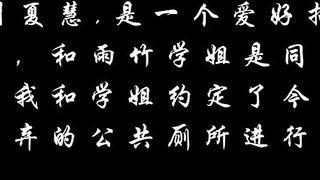 夏慧,是一个爱好
,和雨竹学姐是同
我和学姐约定了今
弃的公共厕所进行